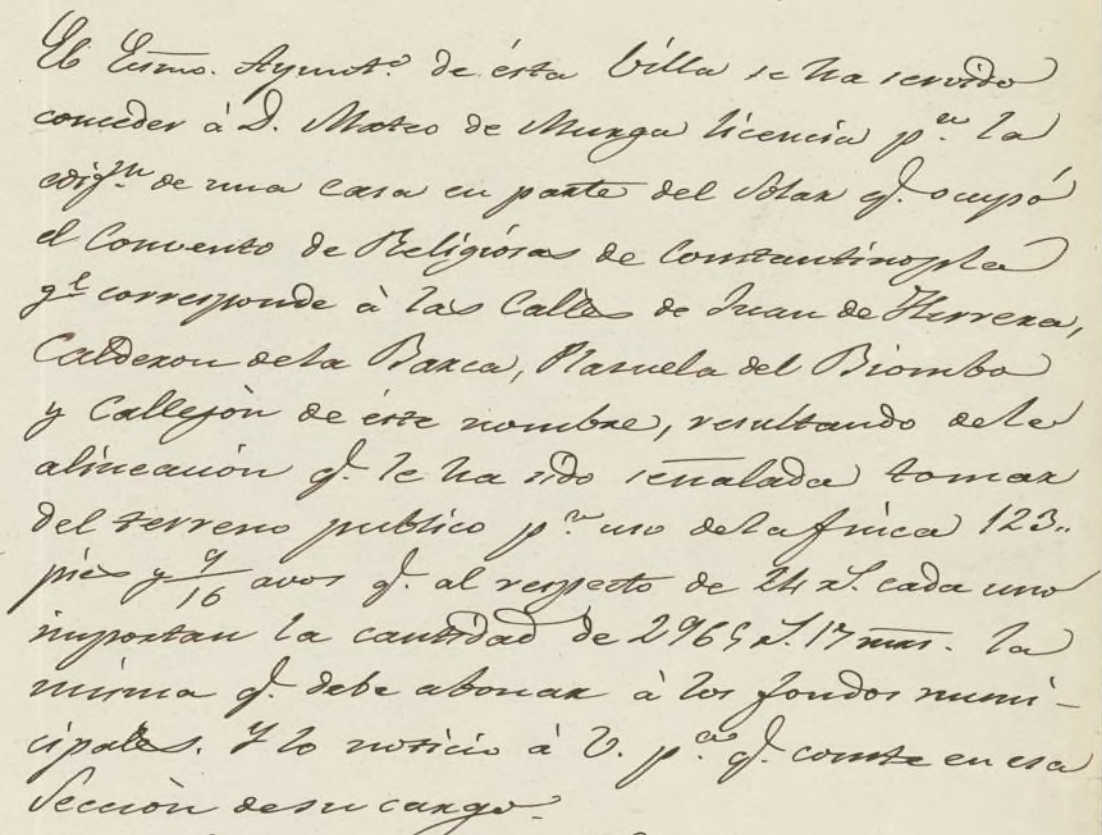 El Exmo. Ayuntº. de ésta Villa se ha servido
conceder à D. Mateo de Murga licencia pª. la
edifⁿ. de una casa en parte del Solar q. ocupó
el Convento de Religiosas de Constantinopla
qᵉ corresponde à las Calles de Juan de Herrera,
Calderon dela Barca, Plazuela del Biombo
y Callejón de éste nombre, resultando dela
alineación q. le ha sido señalada tomar
del terreno publico pª. uso dela finca 123..
pies y 9/16 avos q. al respecto de 24 rs. cada uno
importan la cantidad de 2965 rs. 17 mrs. la
misma q. debe abonar à los fondos muni-
cipales. Y lo noticio à V. pª. q. conste en esa
Sección desu cargo.